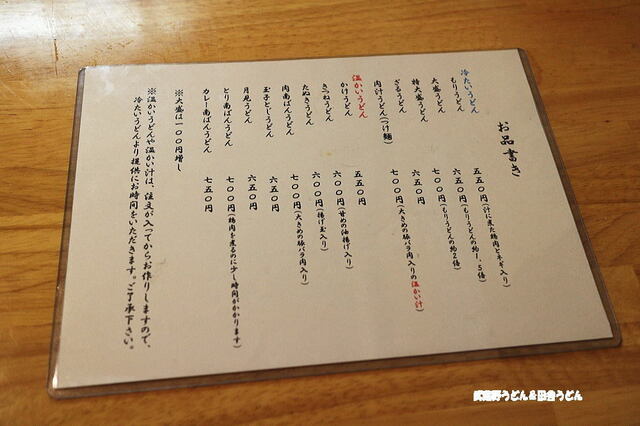 お品書き
冷たいうどん
もりうどん 五五〇円(汁に煮た鶏肉とネギ入り)
大盛うどん 六五〇円(もりうどんの約1.5倍)
特大盛うどん 七〇〇円(もりうどんの約2倍)
ざるうどん 六五〇円
肉汁うどん(つけ麺) 七〇〇円(大きめの豚バラ肉入りの温かい汁)
温かいうどん
かけうどん 五五〇円
きつねうどん 六〇〇円(甘めの油揚げ入り)
たぬきうどん 六〇〇円(揚げ玉入り)
肉南ばんうどん 七〇〇円(大きめの豚バラ肉入り)
玉子とじうどん 六五〇円
月見うどん 六五〇円
とり南ばんうどん 七〇〇円(鶏肉を煮るのに少し時間がかかります)
カレー南ばんうどん 七五〇円
※大盛は一〇〇円増し
※温かいうどんや温かい汁は、注文が入ってからお作りしますので、
冷たいうどんより提供にお時間をいただきます。ご了承下さい。
武蔵野うどん&田舎うどん